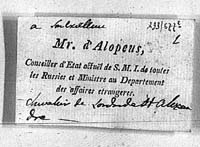 a Son Excellence
Mr. d'Alopeus,
Conseiller d'Etat actuel de S. M. I. de toutes
les Russies et Ministre au Departement
des affaires étrangeres.
chevalier de l'ordre de St Alexan
dre